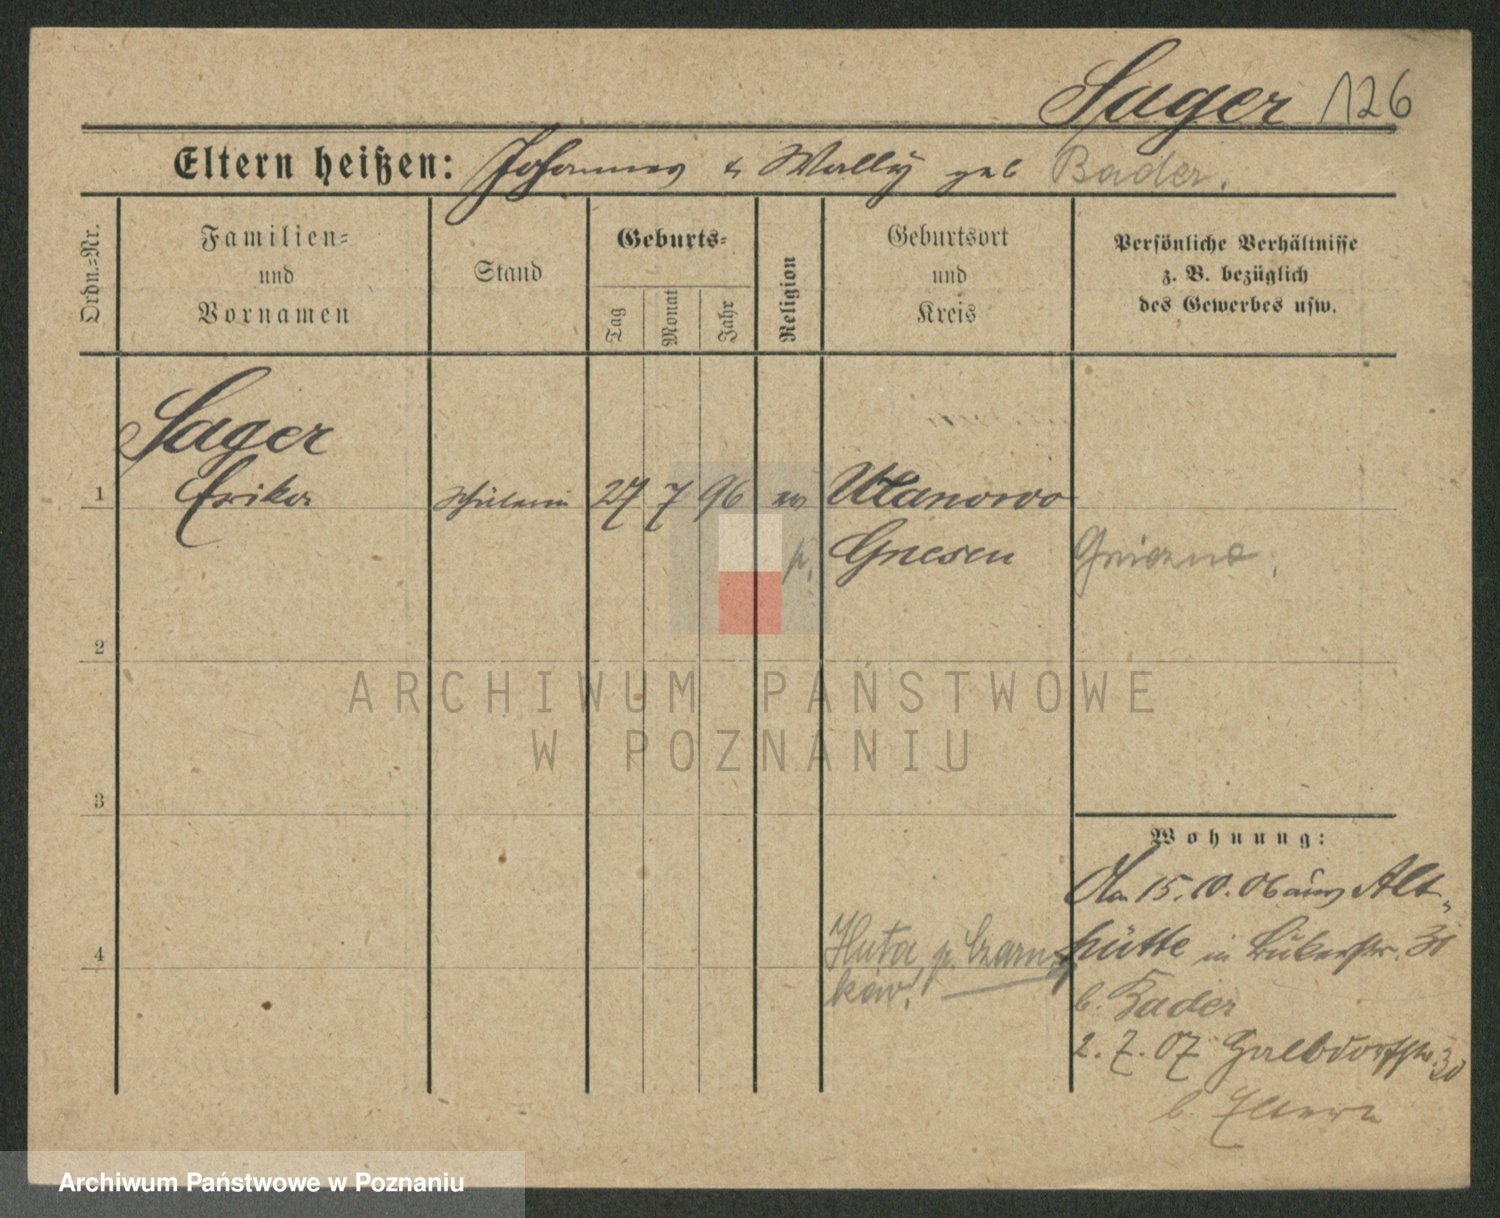 Sager 126
Eltern heißen: Johannes & Wally geb Bader.
Ordn.=Nr.
Familien=
und
Vornamen
Stand
Geburts=
Tag
Monat
Jahr
Religion
Geburtsort
und
Kreis
Persönliche Verhältnisse
z. B. bezüglich
des Gewerbes usw.
Sager
1 Erika Schülerin 27 7 96 ev Ulanowo
p. Gnesen Gniezno.
2
ARCHIWUM PAŃSTWOWE
W POZNANIU
3
Wohnung:
15.10.06 aus Alt-
Huta, p. Czarn- hütte in 31
ków!
b. Bader
2.7.07 30
b. Eltern
4
Archiwum Państwowe w Poznaniu